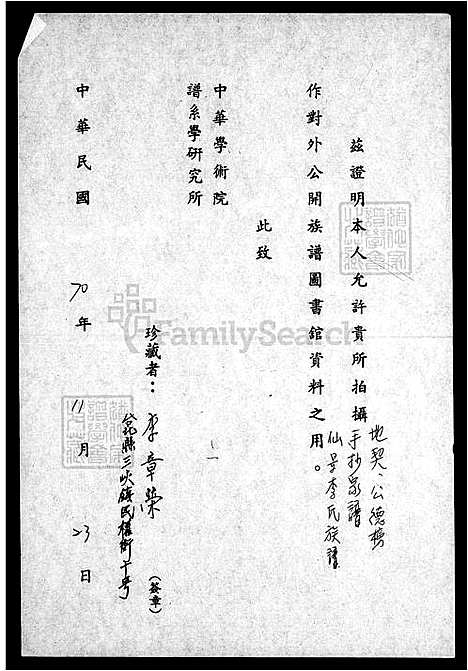 茲證明本人允許貴所拍攝
地契.公德榜
手抄家譜
仙景李氏族譜
作對外公開族譜圖書館資料之用。
此致
中華學術院
譜系學研究所
珍藏者：李章榮
(簽章)
台北縣三峽鎮民權街十号
中華民國 70年 11月 23日
FamilySearch